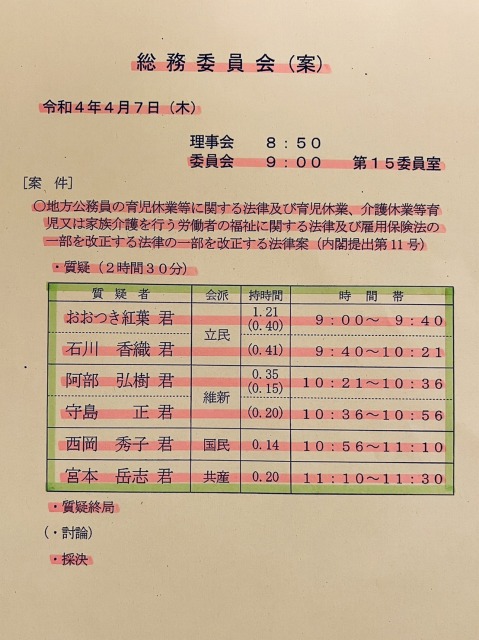 総務委員会(案)
令和4年4月7日(木)
理事会 8:50
委員会 9:00 第15委員室
[案 件]
○地方公務員の育児休業等に関する法律及び育児休業、介護休業等育
児又は家族介護を行う労働者の福祉に関する法律及び雇用保険法の
一部を改正する法律の一部を改正する法律案(内閣提出第11号)
・質疑(2時間30分)
質疑者 会派 持時間 時間帯
おおつき紅葉 君 立民 1.21 (0.40) 9:00~ 9:40
石川 香織 君 (0.41) 9:40~10:21
阿部 弘樹 君 維新 0.35 (0.15) 10:21~10:36
守島 正 君 (0.20) 10:36~10:56
西岡 秀子 君 国民 0.14 10:56~11:10
宮本 岳志 君 共産 0.20 11:10~11:30
・質疑終局
(・討論)
・採決